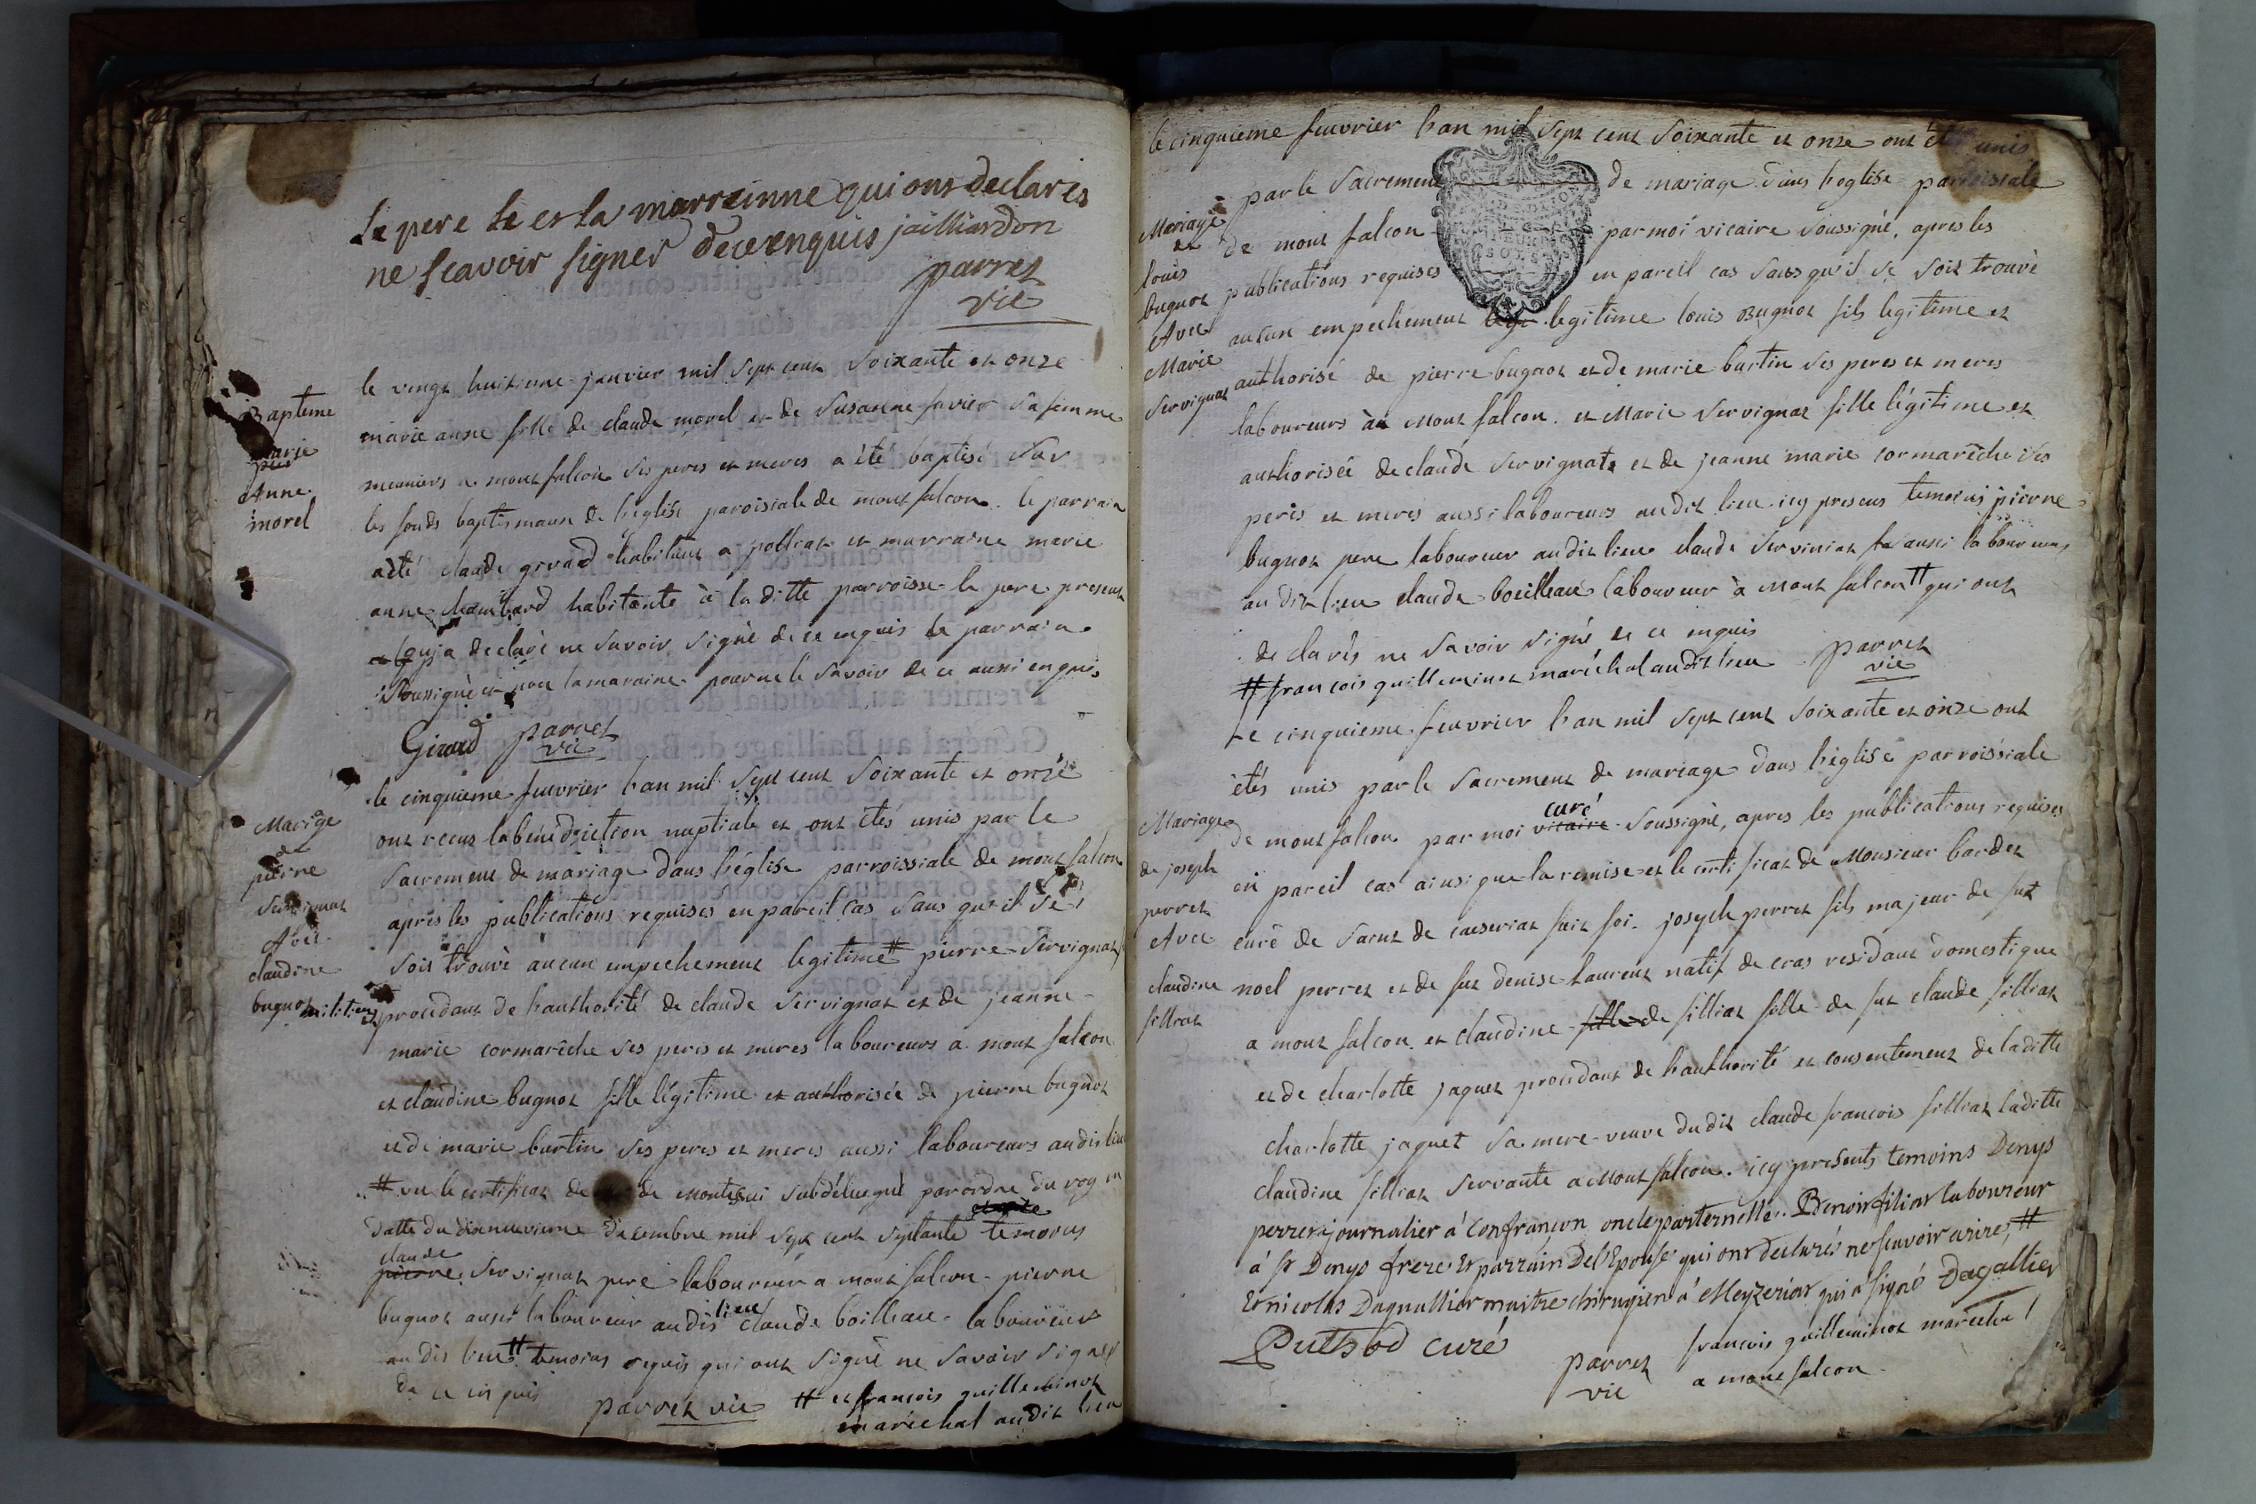 le pere le et la marrainne qui ons declarés
ne scavoir signer de ce enquis jailliardon
parret
vic
Bapteme
marie
Anne
morel
le vingt huitieme janvier mil sept cent soixante et onze
marie anne fille de claude morel et de Susanne favier sa femme
meuniers a montfalcon ses peres et meres a été baptisé sur
les fonds baptismaux de l'église paroisiale de montfalcon. le parrain
a été claude girard habitant a polliat et marraine marie
anne chambard habitante à la ditte parroisse le pere present
qui a declaré ne savoir signé de ce enquis le parrain
soussigné et non la maraine pour ne le savoir de ce aussi enquis
Girard parret
vic
Mariage
de
pierre
Servignat
Avec
claudine
bugnot militien
le cinquieme feuvrier l'an mil sept cent soixante et onze
ont recus la bénédiction nuptiale et ont étés unis par le
sacrement de mariage dans l'église parroissiale de mont falcon
après les publications requises en pareil cas sans qu'il se
soit trouvé aucun empechement legitime # pierre Servignat
procédant de l'authorité de claude Servignat et de jeanne
marie cormarêche ses peres et meres laboureurs a mont falcon
et claudine bugnot fille légitime et authorisée de pierre bugnot
et de marie burtin ses peres et meres aussi laboureurs au dit lieu
# vu le certificat de de Montessui subdélegué par ordre du roy en
datte du dixneuvieme decembre mil sept cent septante temoins
claude
pierre Servignat pere laboureur a mont falcon pierre
bugnot aussi laboureur au dit lieu claude boilleau laboureur
au dit lieu # temoins requis qui ont signé ne savoir signer
de ce enquis parret vic # et françois guilleminot
maréchal au dit lieu
le cinquieme feuvrier l'an mil sept cent soixante et onze ont été unis
par le sacrement de mariage dans l'eglise parroissiale
de mont falcon par moi vicaire soussigné, apres les
publications requises en pareil cas sans qu'il se soit trouvé
aucun empechement legi legitime louis Bugnot fils legitime et
Mariage
de
louis
bugnot
Avec
Marie
Servignat
authorisé de pierre bugnot et de marie burtin ses peres et meres
laboureurs à Mont falcon. et Marie Servignat fille légitime et
authorisée de claude Servignat et de jeanne marie cormarêche ses
peres et meres aussi laboureurs au dit lieu icy presens temoins pierre
bugnot pere laboureur au dit lieu claude Serviniat aussi laboureur
au dit lieu claude boilleau laboureur à Mont falcon # qui ont
declarés ne savoir signé de ce enquis parret
vic
# françois guilleminot maréchal au dit lieu
Le cinquieme feuvrier l'an mil sept cent soixante et onze ont
étés unis par le sacrement de mariage dans l'église parroissiale
Mariage
de joseph
perret
Avec
claudine
filliat
curé
de mont falcon par moi vicaire soussigné, apres les publications requises
en pareil cas ainsi que la remise et le certificat de Monsieur bardet
curé de fait foi. joseph perret fils majeur de fut
noel perret et de fut denise laurent natif de cras residant domestique
a mont falcon et claudine fille de filliat fille de fut claude filliat
et de charlotte jaquet procedant de l'authorité et consentement de laditte
charlotte jaquet sa mere veuve dudit claude françois filliat laditte
claudine filliat servante a Mont falcon. icy presents temoins Denys
perret journalier á Confrançon oncle parternelle. Benoit filiat laboureur
á St Denys frere et parrain De l'Epouse qui ont declarés ne scavoir ecrire, #
Et nicolas Dagnallier maitre chirugien á Meyzeriat qui a signé Dagallier
Puthod curé
parret
vic
françois guilleminot marechal
a mont falcon